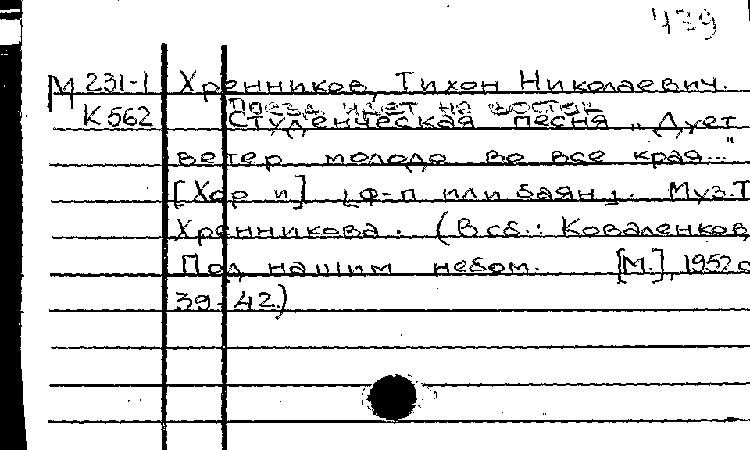 439
М 231-1 Хренников, Тихон Николаевич.
К 562 Поезд идет на восток
Студенческая песня „Дует
ветер молодо во все края..."
[Хор и] [ф-п или баян]. Муз. Т
Хренникова. (В сб.: Коваленков
Под нашим небом. [М.], 1952 с
39-42.)